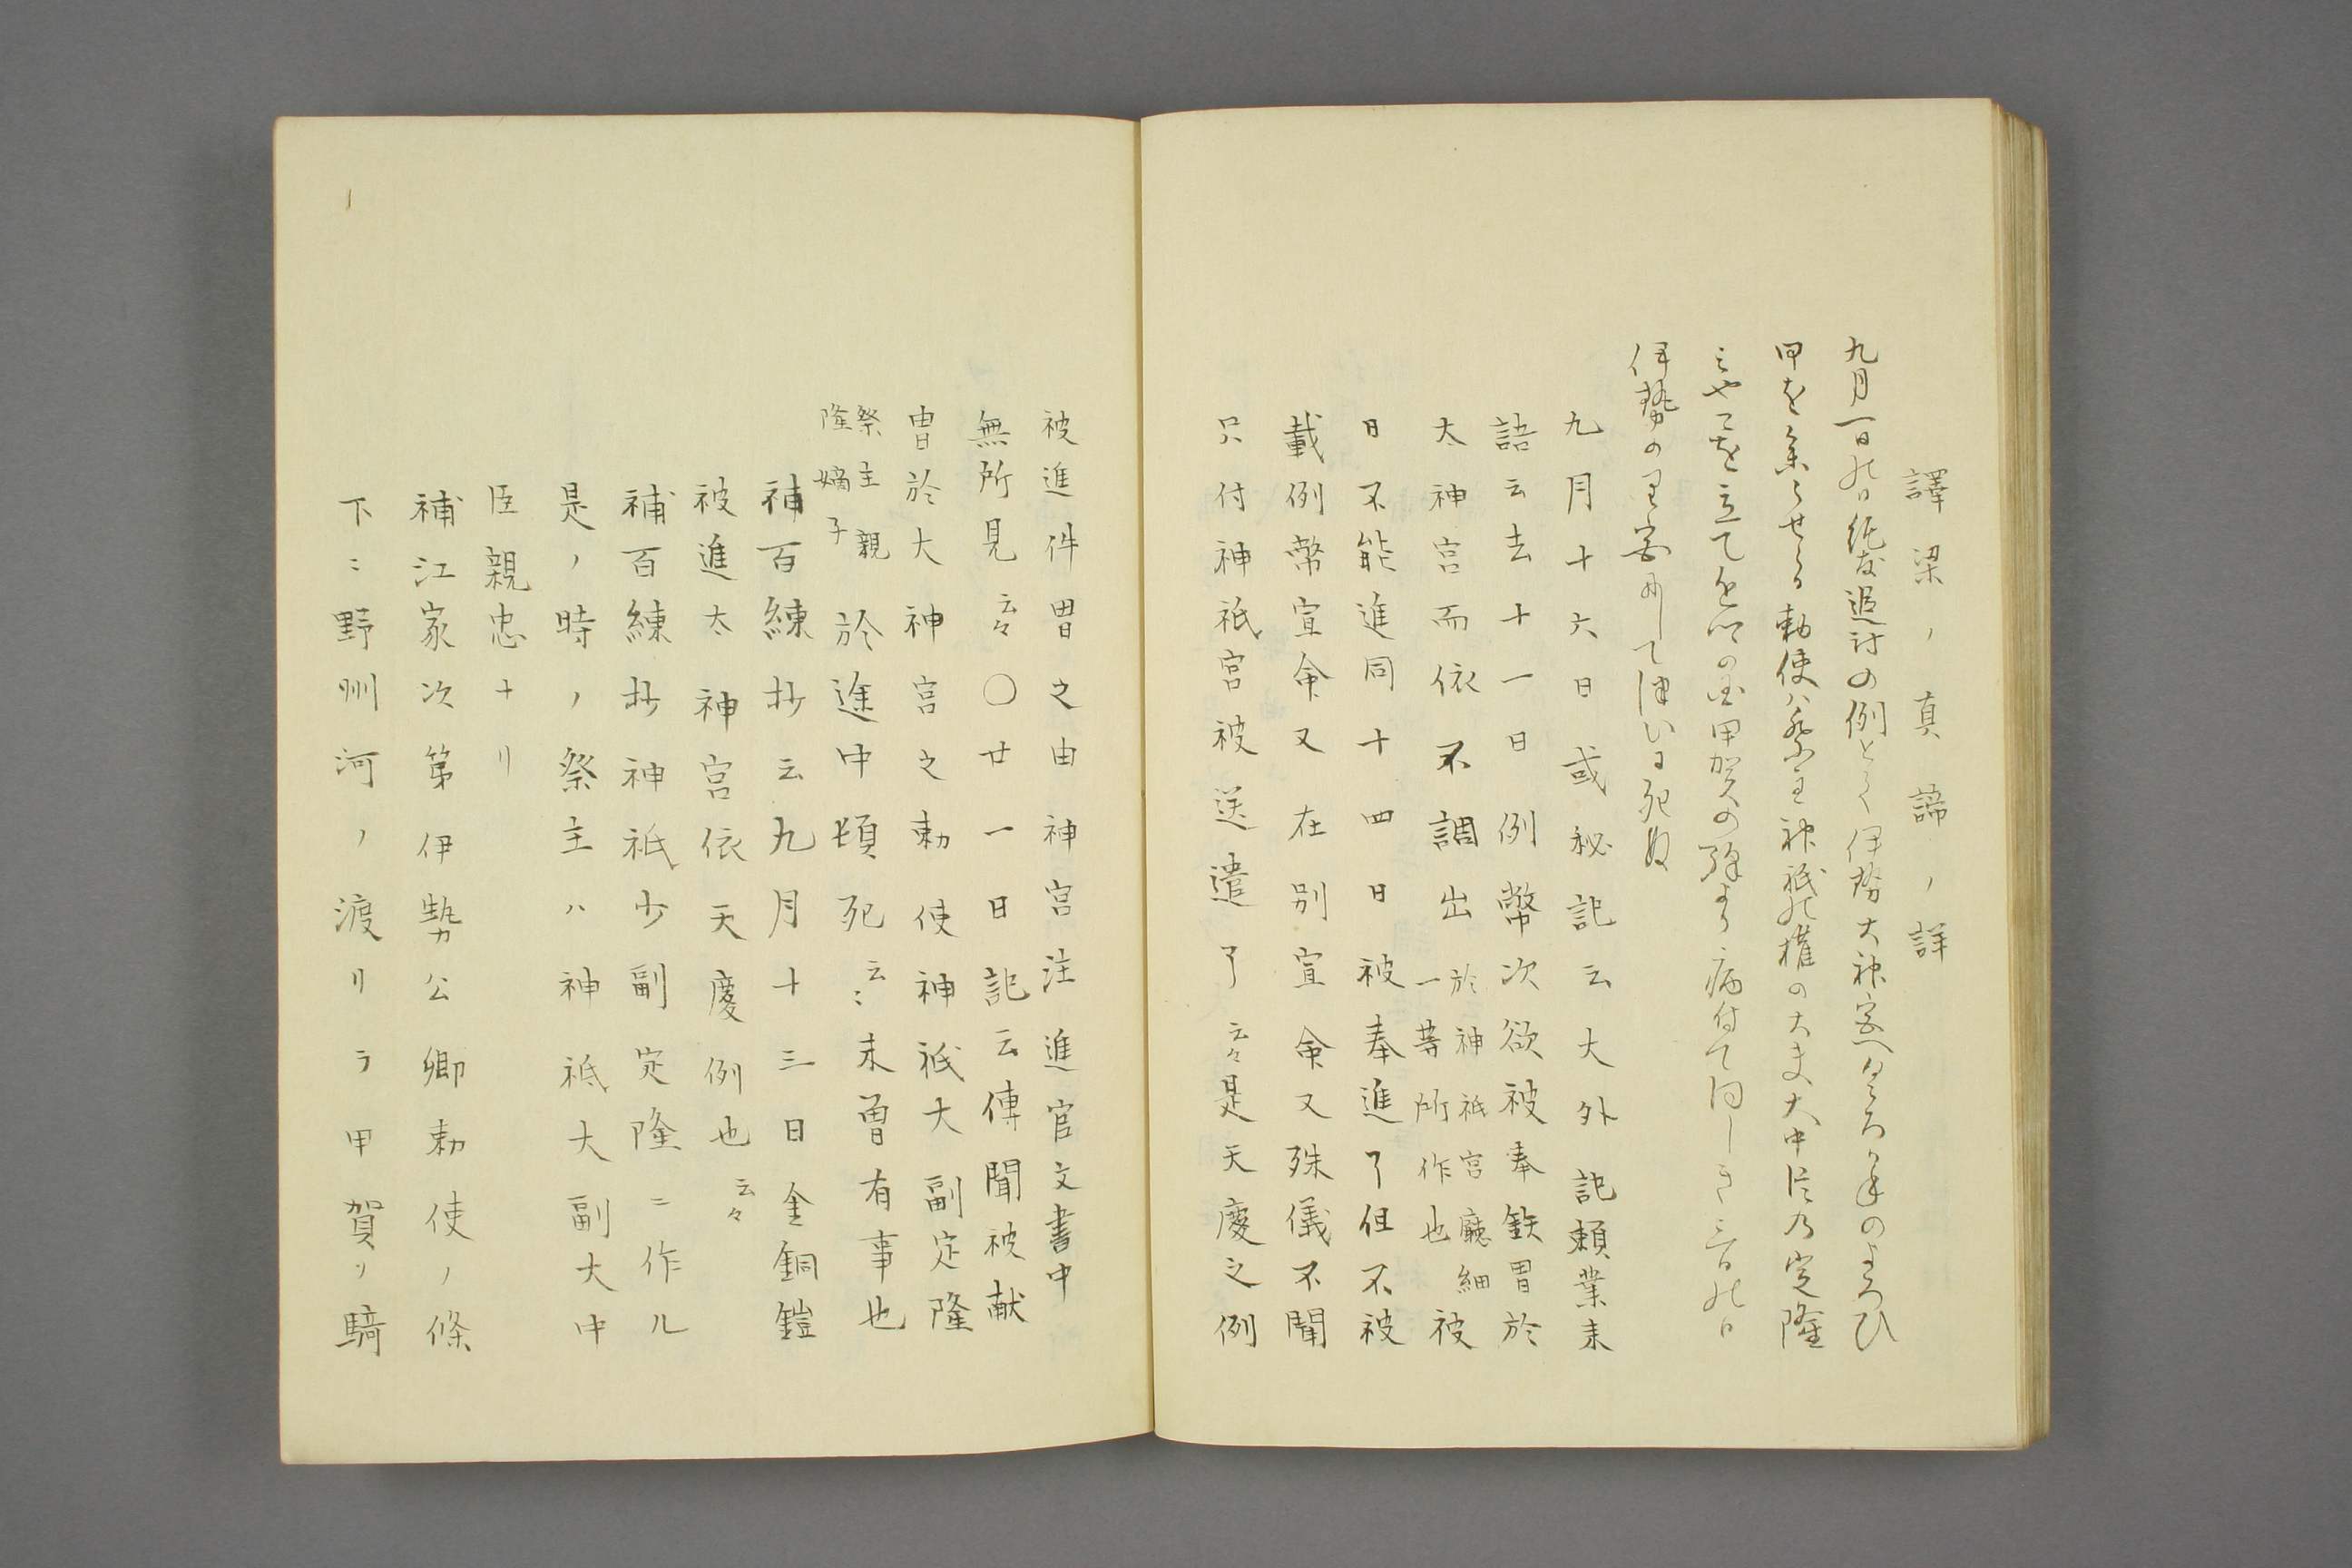 譯梁ノ真諦ノ詳
九月一日の日純友追討の例とて伊勢大神宮へくろかねのよろひ
甲を参らせらる勅使ハ祭主神祇の権の大夫大中臣乃定隆
ミやこを立てあふミの国甲賀の驛より病付て同しき三日の日
伊勢の里宮にして つひに死ぬ
九月十六日或秘記云大外記頼業来
語云去十一日例幣次欲被奉鉄冑於
太神宮而依不調出於神祇宮廳細一等所作也被
日不能進同十四日被奉進了但不被
載例幣宣命又在別宣命又殊儀不聞
只付神祇宮被送遣了云々是天慶之例
被進件冑之由神宮注進官文書中
無所見云々〇廿一日記云傳聞被献
冑於大神宮之勅使神祇大副定隆
祭主親隆嫡子於途中頓死云々未曽有事也
補百練抄云九月十三日金銅鎧
被進太神宮依天慶例也云々
補百練抄神祇少副定隆ニ作ル
是ノ時ノ祭主ハ神祇大副大中
臣親忠ナリ
補江家次第伊勢公卿勅使ノ條
下ニ野州河ノ渡リヲ甲賀ノ騎